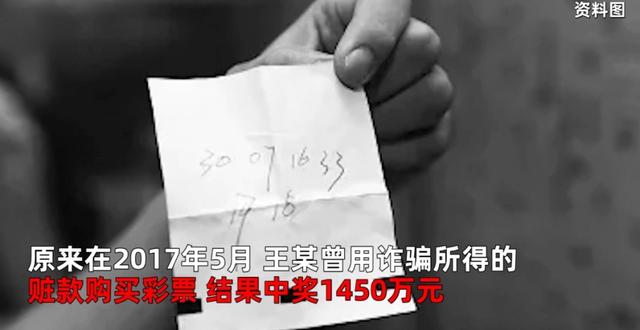 资料图
30 07 16 33
原来在2017年5月 王某曾用诈骗所得的
赃款购买彩票 结果中奖1450万元